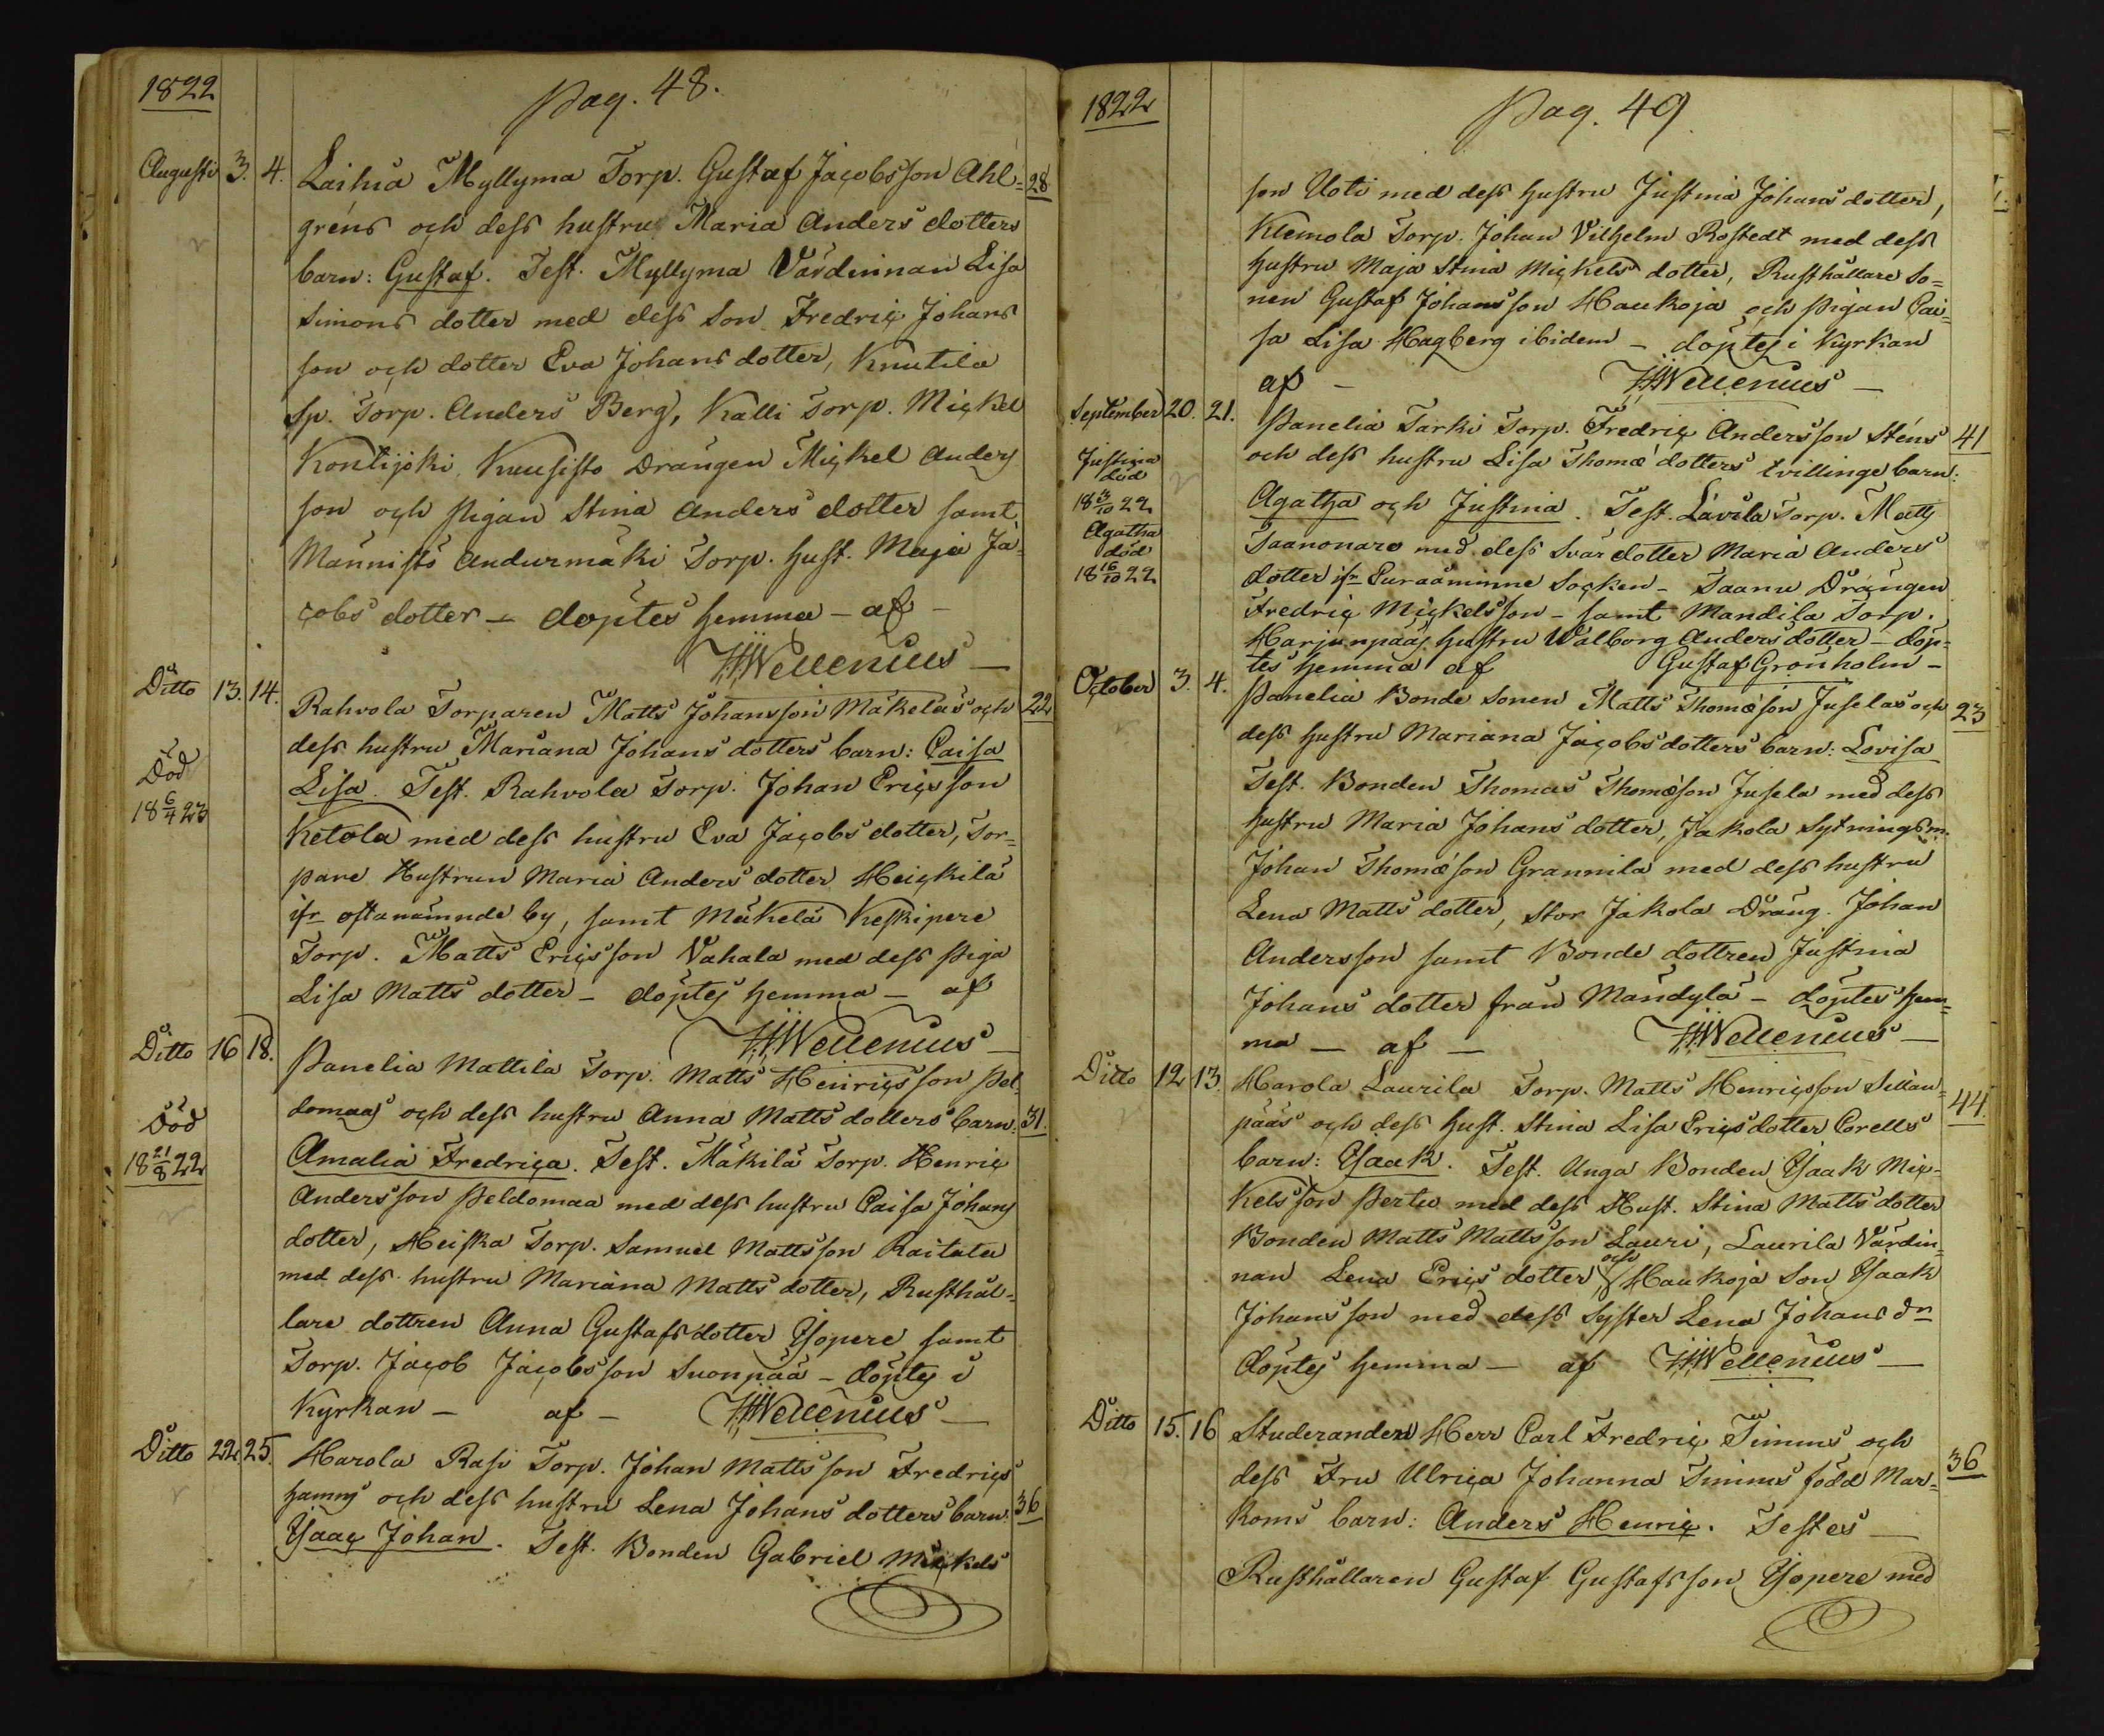 1822
Pag. 48.
Augusti 3. 4. Laihia Myllyma Torp. Gustaf Jacobsson Ahl= 28
gréns och dess hustru Maria Anders dotters
barn: Gustaf. Test. Myllyma Värdinnan Lisa
Simons dotter med dess Son Fredric Johans
son och dotter Eva Johans dotter, Knutila
Sp. Torp. Anders Berg, Kalli Torp. Mickel
Kontijoki, Kuusisto Drängen Mickel Anders
son och Pigan Stina Anders dotter samt
Männistö Andurmäki Torp. hust. Maja Ja=
cobs dotter – döptes hemma – af –
HHWellenius –
Ditto 13. 14. Rahvola Torparen Matts Johansson Mäkeläs och 22
dess hustru Mariana Johans dotters barn: Caisa
Död
Lisa. Test. Rahvola Torp. Johan Ericsson
18 6/4 23
Ketola med dess hustru Eva Jacobs dotter, Tor=
pare Hustrun Maria Anders dotter Heickilä
ifr ofta nämnde by, samt Mäkelä Keskipere
Torp. Matts Ericsson Vahala med dess Piga
Lisa Matts dotter – döptes hemma – af
HHWellenius –
Ditto 16 18. Panelia Mattila Torp. Matts Henricsson Pel
domaas och dess hustru Anna Matts dotters barn: 31.
Död
18 21/8 22
Amalia Fredrica. Test. Mäkilä Torp. Henric
Andersson Peldomaa med dess hustru Caisa Johans
dotter, Heiska Torp. Samuel Mattsson Raitala
med dess hustru Mariana Matts dotter, Rusthål=
lare dottren Anna Gustafs dotter Yjopere samt
Torp. Jacob Jacobsson Suonpää – döptes i
Kyrkan – af – HHWellenius –
Ditto 22. 25. Harola Rasi Torp. Johan Mattsson Fredrics
hamns och dess hustru Lena Johans dotters barn: 36
Ysaac Johan. Test. Bonden Gabriel Mickels
1822
Pag. 49
son Uoti med dess hustru Justina Johans dotter,
Klemola Torp. Johan Vilhelm Rostedt med dess
hustru Maja Stina Mickels dotter, Rusthållare So=
nen Gustaf Johansson Haukoja och Pigan Cai=
sa Lisa Hagberg ibidem – döptes i Kyrkan
af – HHWellenius –
September 20. 21. Panelia Tarki Torp. Fredric Andersson Sténs 41
och dess hustru Lisa Thomæ dotters tvillinge barn:
Justina
död
18 3/10 22
Agatha
död
18 16/10 22
Agatha och Justina. Test. Lavila Torp. Matts
Taanonaro med dess Svär dotter Maria Anders
dotter ifr Euraåminne Socken – Saanu Drängen
Fredric Mickelsson – samt Mandila Torp.
Harjunpääs hustru Walborg Anders dotter – döp=
tes hemma af Gustaf Grönholm –
October 3. 4. Panelia Bonde Sonen Matts Thomæson Juselas och 23
dess hustru Mariana Jacobs dotters barn: Lovisa
Test. Bonden Thomas Thomæson Jusela med dess
hustru Maria Johans dotter, Jakola Sytningsm.
Johan Thomæson Grannila med dess hustru
Lena Matts dotter, Stor Jakola Dräng. Johan
Andersson samt Bonde dottren Justina
Johans dotter från Mandylä – döptes hem=
ma – af – HHWellenius –
Ditto 12 13. Harola Laurila Torp. Matts Henricsson Sillan= 44
pääs och dess hust. Stina Lisa Erics dotter Corells
barn: Ysaak. Test. Unga Bonden Ysaak Mic=
kelsson Pertu med dess Hust. Stina Matts dotter
Bonden Matts Mattsson Lauri, Laurila Värdin=
nan Lena Erics dotter, och Haukoja Son Ysaak
Johansson med dess Syster Lena Johans dr
döptes hemma – af HHWellenius –
Ditto 15. 16 Studeranden Herr Carl Fredric Timms och 36
dess Fru Ulrica Johanna Timms född Mar=
koms barn: Anders Henric. Testes –
Rusthållaren Gustaf Gustafsson Yjopere med